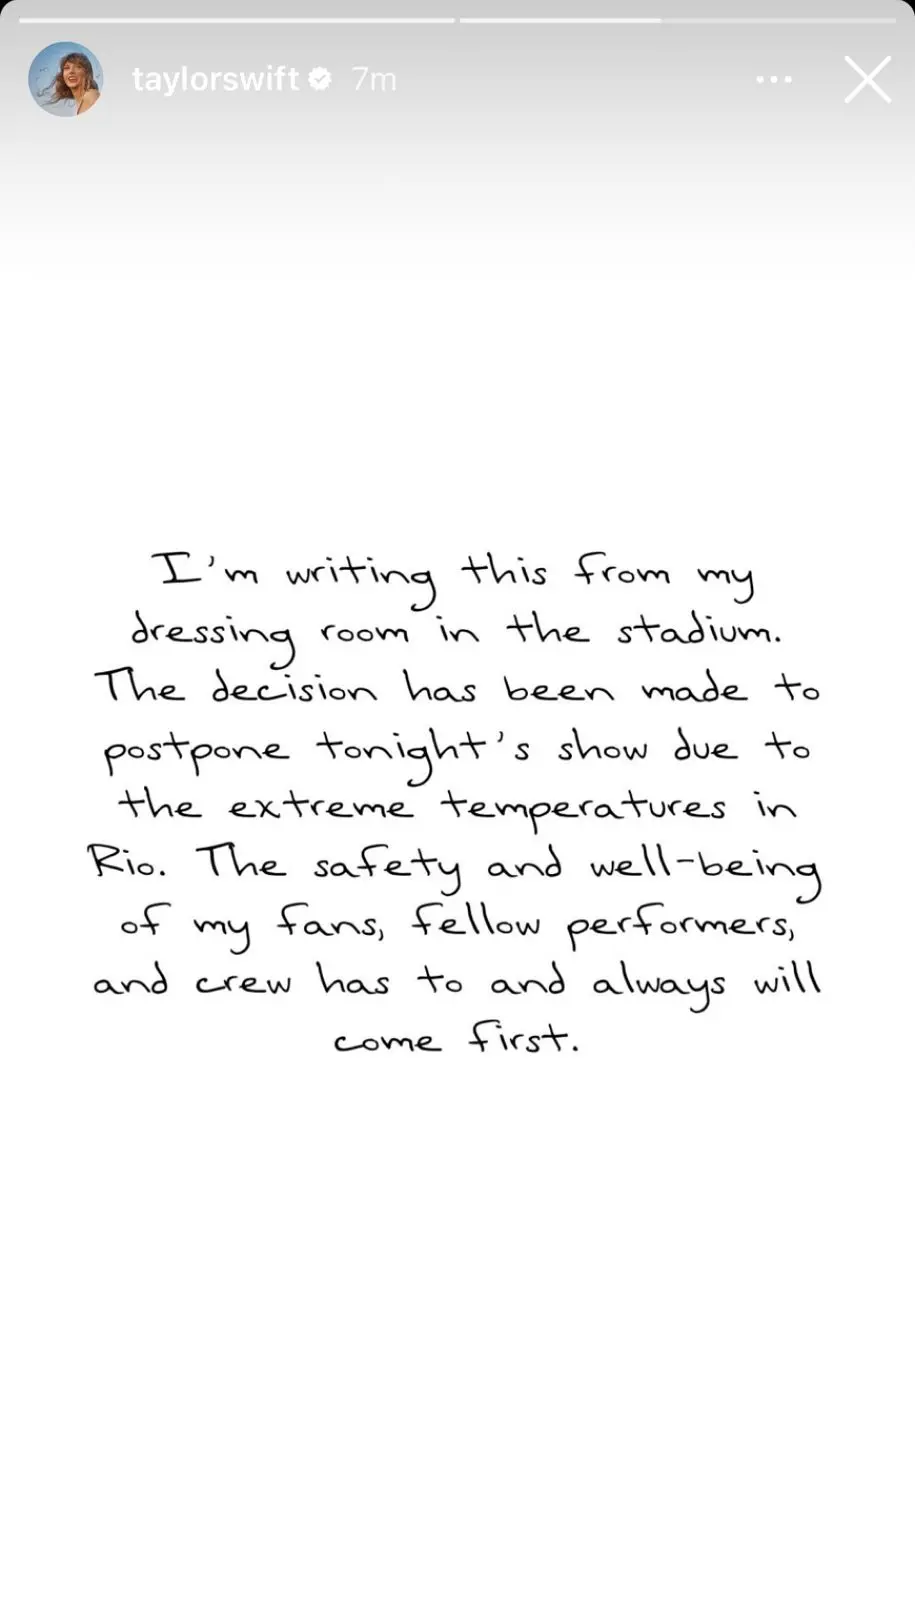 taylorswift 7m
I'm writing this from my
dressing room in the stadium.
The decision has been made to
postpone tonight's show due to
the extreme temperatures in
Rio. The safety and well-being
of my fans, fellow performers,
and crew has to and always will
come first.